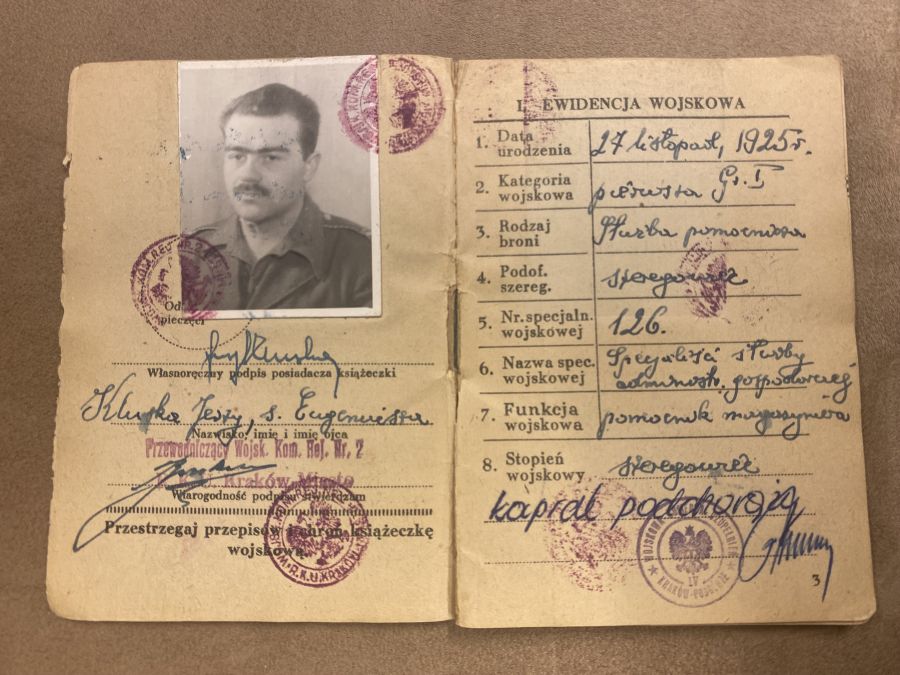 Własnoręczny podpis posiadacza książeczki
Kluska Jerzy, s. Eugeniusza
Nazwisko, imię i imię ojca
Przewodniczący Wojsk. Kom. Rej. Nr. 2
Kraków-Miasto
Wiarogodność podpisu stwierdzam
Przestrzegaj przepisów i chroń książeczkę
wojskową.
I. EWIDENCJA WOJSKOWA
1. Data urodzenia 27 listopad, 1925 r.
2. Kategoria wojskowa pierwsza Gr. I
3. Rodzaj broni Służba pomocnicza
4. Podof. szereg. szeregowiec
5. Nr. specjaln. wojskowej 126.
6. Nazwa spec. wojskowej Specjaliści służby
administr. gospodarczej
7. Funkcja wojskowa pomocnik magazyniera
8. Stopień wojskowy szeregowiec
kapral podchorąży
KRAKÓW-PODGÓRZE
3